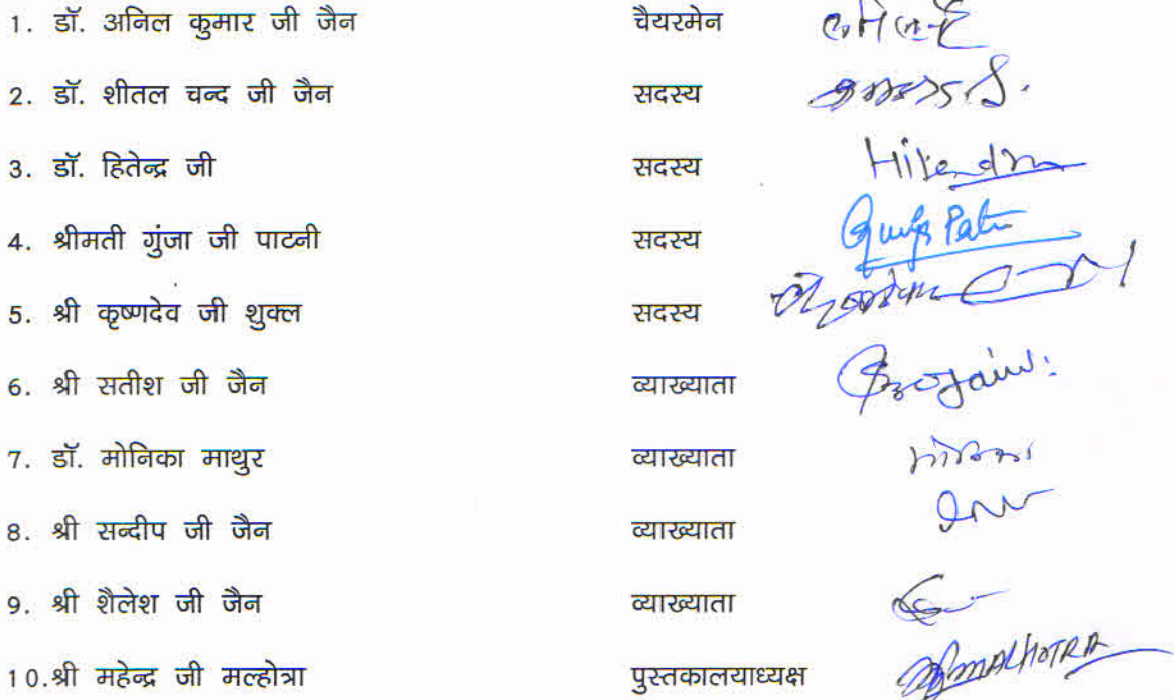 1. डॉ. अनिल कुमार जी जैन चैयरमेन
2. डॉ. शीतल चन्द जी जैन सदस्य
3. डॉ. हितेन्द्र जी सदस्य Hitendra
4. श्रीमती गुंजा जी पाटनी सदस्य
5. श्री कृष्णदेव जी शुक्ल सदस्य
6. श्री सतीश जी जैन व्याख्याता
7. डॉ. मोनिका माथुर व्याख्याता मोनिका
8. श्री सन्दीप जी जैन व्याख्याता
9. श्री शैलेश जी जैन व्याख्याता
10.श्री महेन्द्र जी मल्होत्रा पुस्तकालयाध्यक्ष MALHOTRA